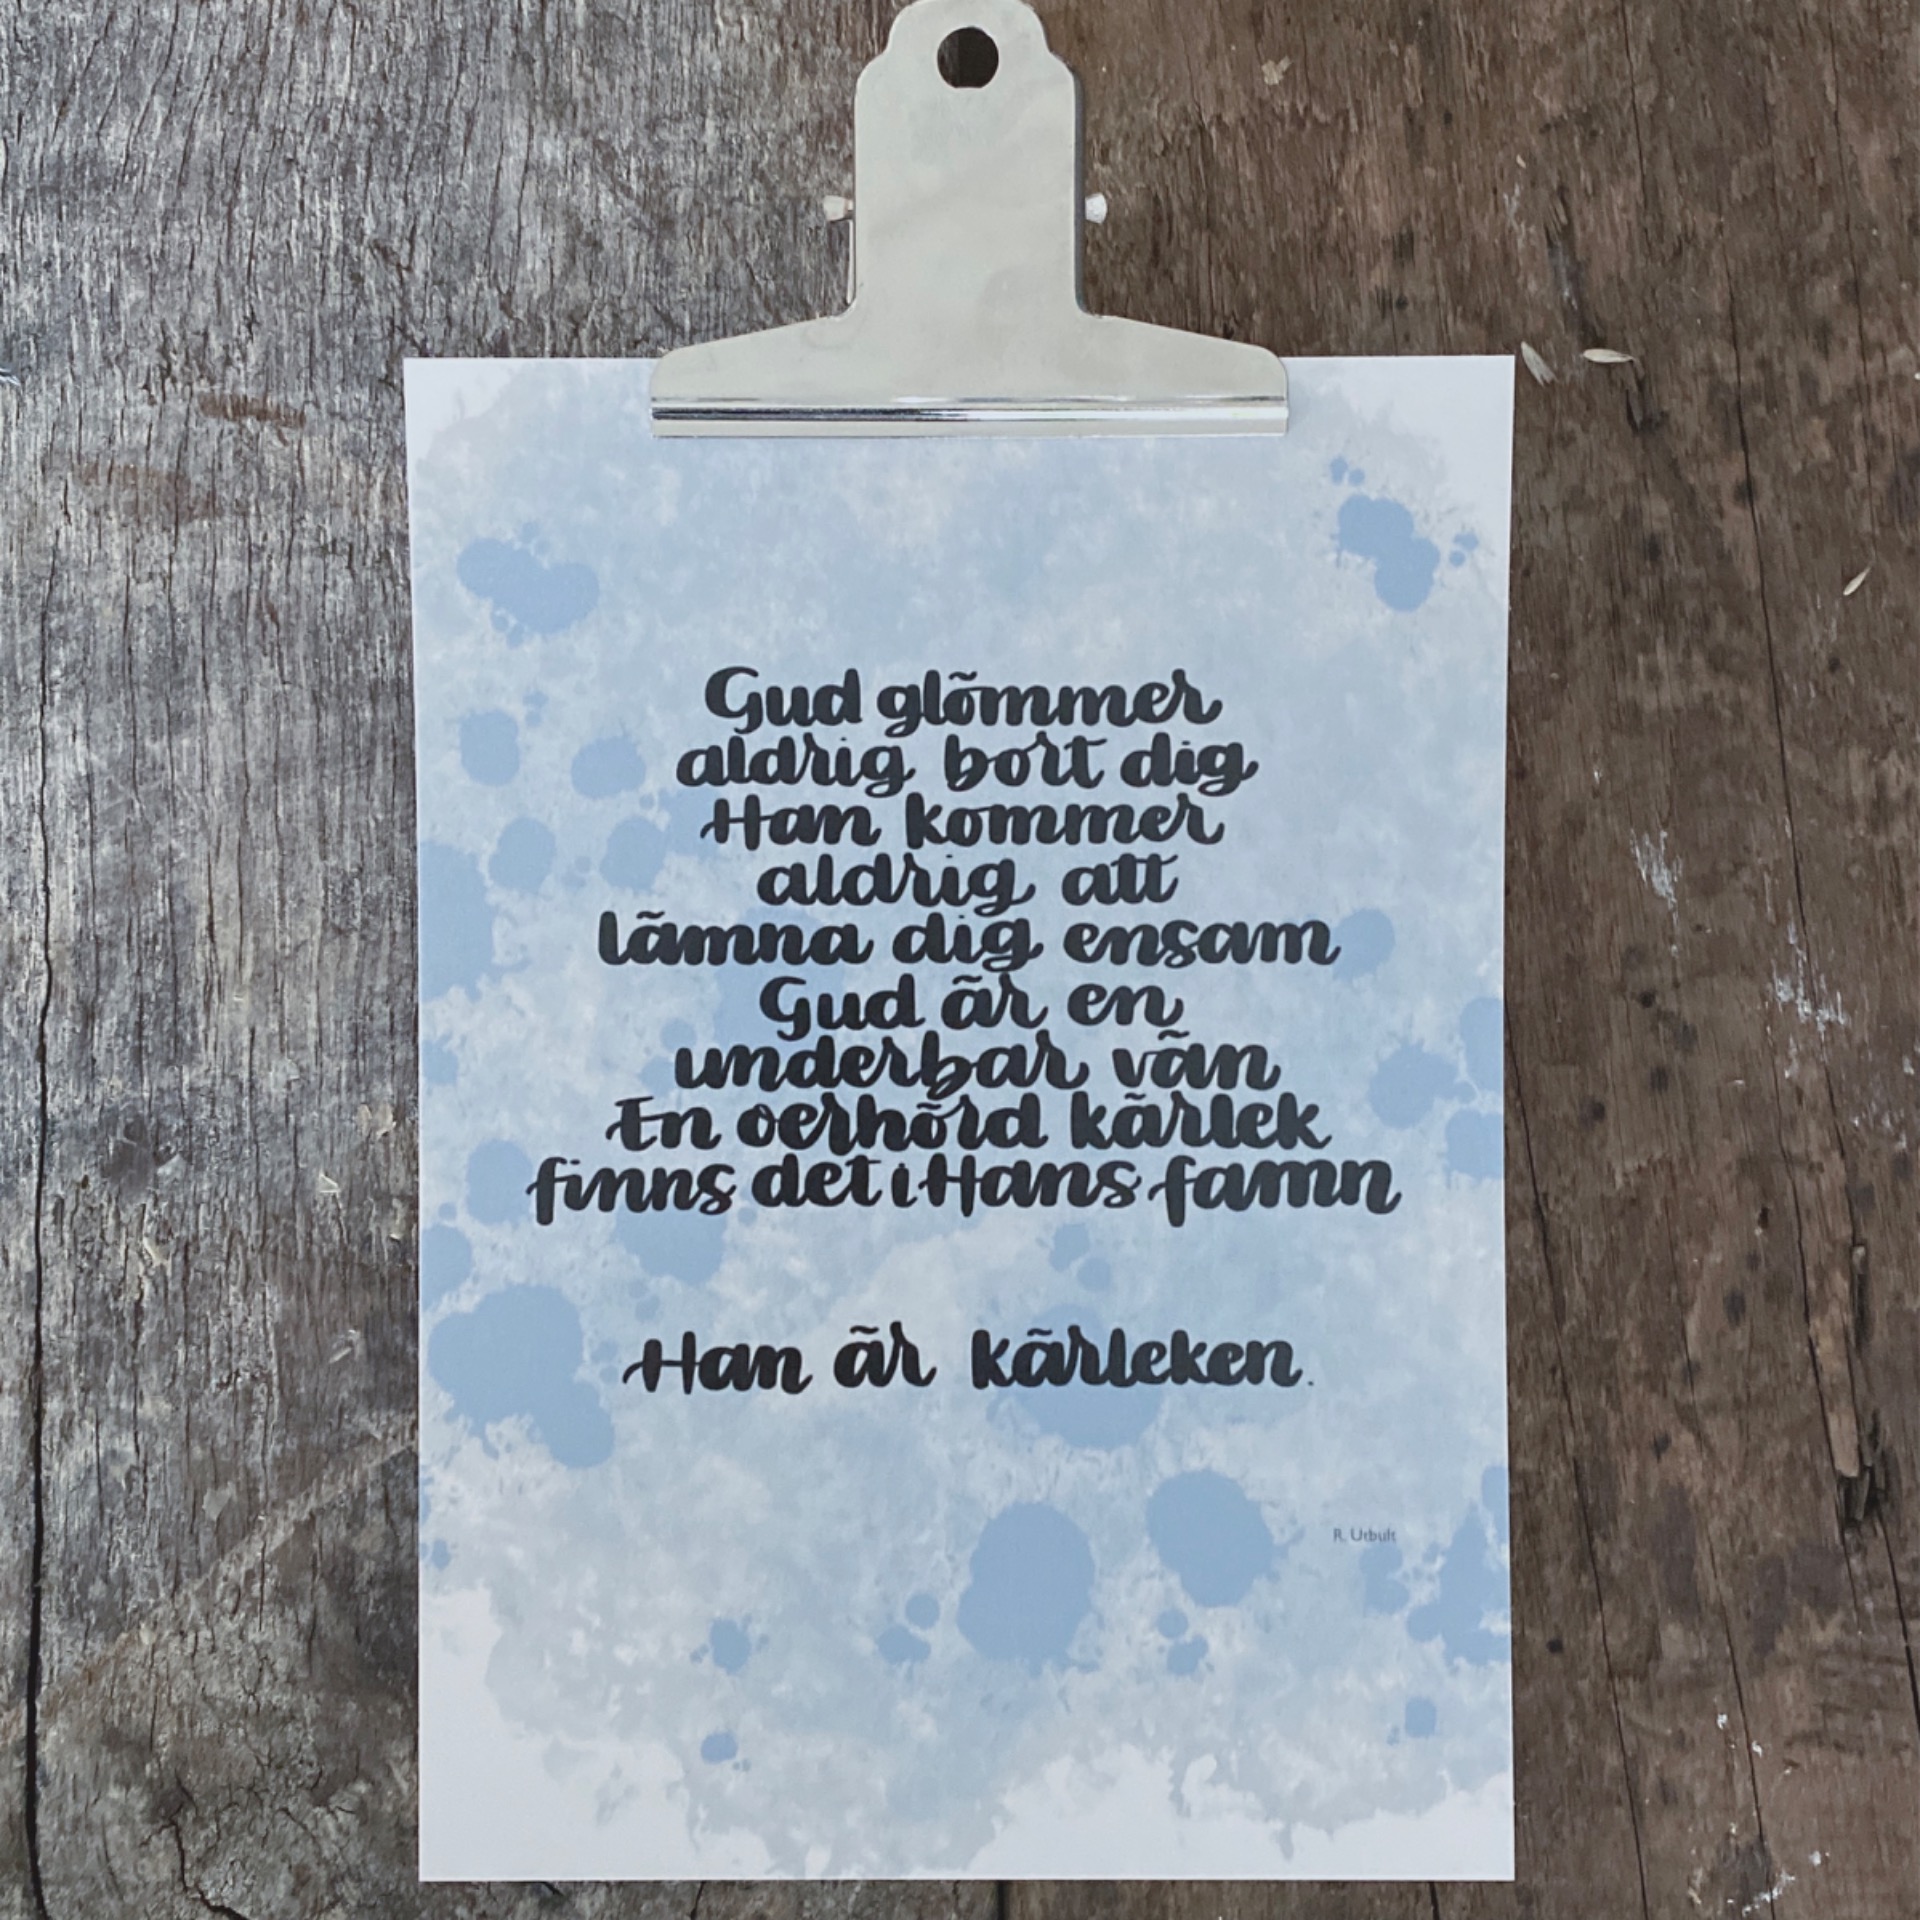 Gud glömmer
aldrig bort dig
Han kommer
aldrig att
lämna dig ensam
Gud är en
underbar vän
En oerhörd kärlek
finns det i Hans famn
Han är kärleken.
R. Utbult